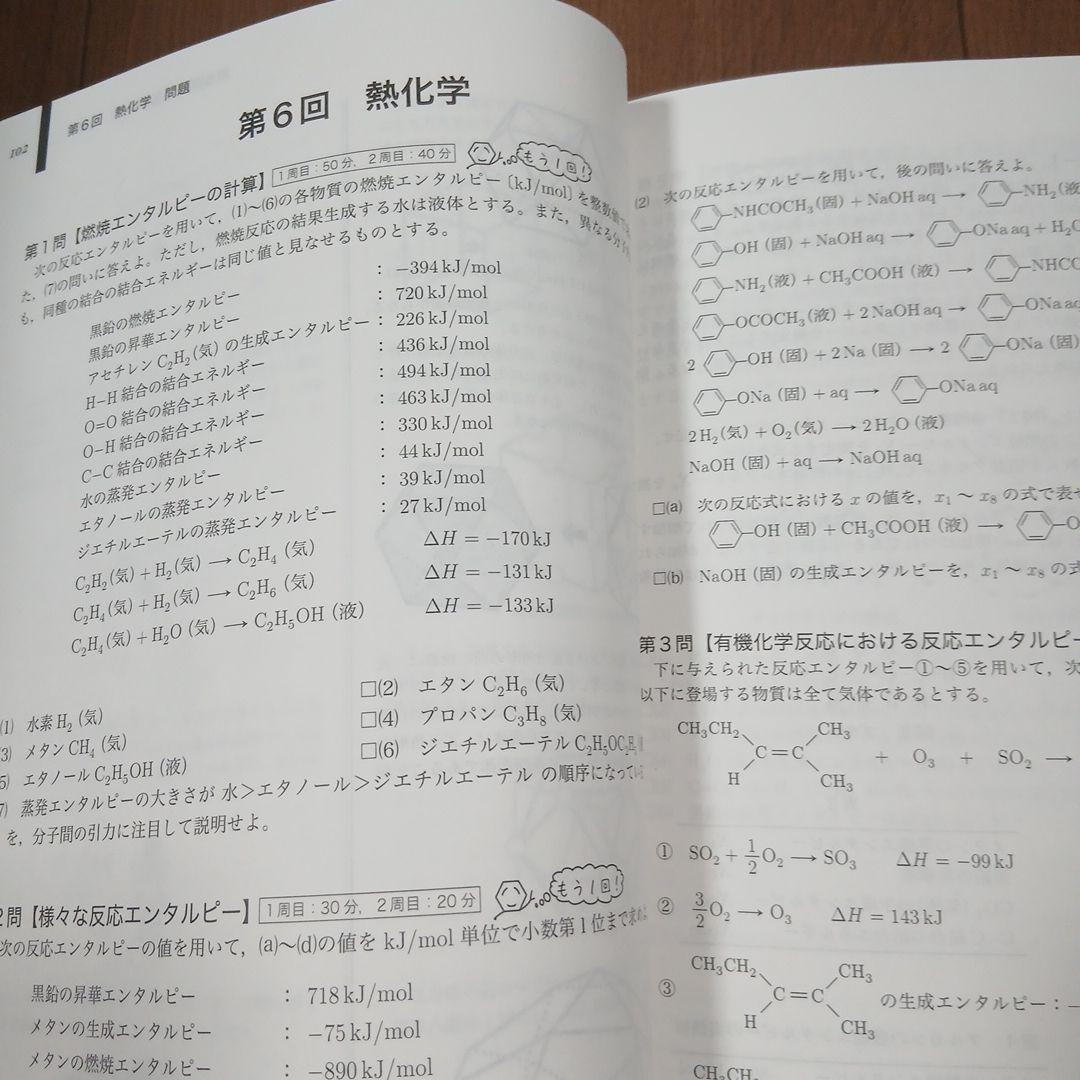 102
第6回 熱化学 問題
第6回 熱化学
第1問【燃焼エンタルピーの計算】 1周目:50分,2周目:40分 もう1回!
次の反応エンタルピーを用いて,(1)〜(6)の各物質の燃焼エンタルピー〔kJ/mol〕を整数値で
た,(7)の問いに答えよ。ただし,燃焼反応の結果生成する水は液体とする。また,異なる分子
も,同種の結合の結合エネルギーは同じ値と見なせるものとする。
黒鉛の燃焼エンタルピー : −394 kJ/mol
黒鉛の昇華エンタルピー : 720 kJ/mol
アセチレン C₂H₂(気)の生成エンタルピー : 226 kJ/mol
H−H 結合の結合エネルギー : 436 kJ/mol
O=O 結合の結合エネルギー : 494 kJ/mol
O−H 結合の結合エネルギー : 463 kJ/mol
C−C 結合の結合エネルギー : 330 kJ/mol
水の蒸発エンタルピー : 44 kJ/mol
エタノールの蒸発エンタルピー : 39 kJ/mol
ジエチルエーテルの蒸発エンタルピー : 27 kJ/mol
C₂H₂(気) + H₂(気) → C₂H₄(気) ΔH = −170 kJ
C₂H₄(気) + H₂(気) → C₂H₆(気) ΔH = −131 kJ
C₂H₄(気) + H₂O(気) → C₂H₅OH(液) ΔH = −133 kJ
(1) 水素 H₂(気) □(2) エタン C₂H₆(気)
(3) メタン CH₄(気) □(4) プロパン C₃H₈(気)
(5) エタノール C₂H₅OH(液) □(6) ジエチルエーテル C₂H₅OC₂H₅
(7) 蒸発エンタルピーの大きさが 水>エタノール>ジエチルエーテル の順序になって
を,分子間の引力に注目して説明せよ。
2問【様々な反応エンタルピー】 1周目:30分,2周目:20分 もう1回!
次の反応エンタルピーの値を用いて,(a)〜(d)の値を kJ/mol 単位で小数第1位まで求め
黒鉛の昇華エンタルピー : 718 kJ/mol
メタンの生成エンタルピー : −75 kJ/mol
メタンの燃焼エンタルピー : −890 kJ/mol
(2) 次の反応エンタルピーを用いて,後の問いに答えよ。
−NHCOCH₃(固) + NaOH aq → −NH₂(液
−OH(固) + NaOH aq → −ONa aq + H₂O
−NH₂(液) + CH₃COOH(液) → −NHCO
−OCOCH₃(液) + 2 NaOH aq → −ONa aq
2 −OH(固) + 2 Na(固) → 2 −ONa(固)
−ONa(固) + aq → −ONa aq
2 H₂(気) + O₂(気) → 2 H₂O(液)
NaOH(固) + aq → NaOH aq
□(a) 次の反応式における x の値を,x₁ 〜 x₈ の式で表せ
−OH(固) + CH₃COOH(液) → −O
□(b) NaOH(固)の生成エンタルピーを,x₁ 〜 x₈ の式
第3問【有機化学反応における反応エンタルピー
下に与えられた反応エンタルピー①〜⑤を用いて,次
以下に登場する物質は全て気体であるとする。
CH₃CH₂ CH₃
C=C + O₃ + SO₂ →
H CH₃
① SO₂ + 1/2 O₂ → SO₃ ΔH = −99 kJ
② 3/2 O₂ → O₃ ΔH = 143 kJ
CH₃CH₂ CH₃
③ C=C の生成エンタルピー:−
H CH₃
CH₃CH₂